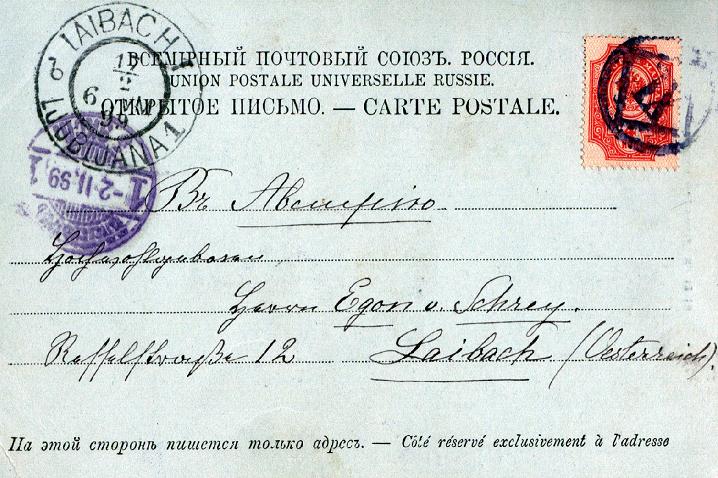 LAIBACH 1
LJUBLJANA 1
ВСЕМІРНЫЙ ПОЧТОВЫЙ СОЮЗЪ. РОССІЯ.
UNION POSTALE UNIVERSELLE RUSSIE.
ОТКРЫТОЕ ПИСЬМО. — CARTE POSTALE.
-2.II.99.
Въ Австрію
Hochwohlgeboren
Herrn Egon v. Schrey.
12 Laibach (Oesterreich).
На этой сторонѣ пишется только адресъ. — Côté réservé exclusivement à l'adresse